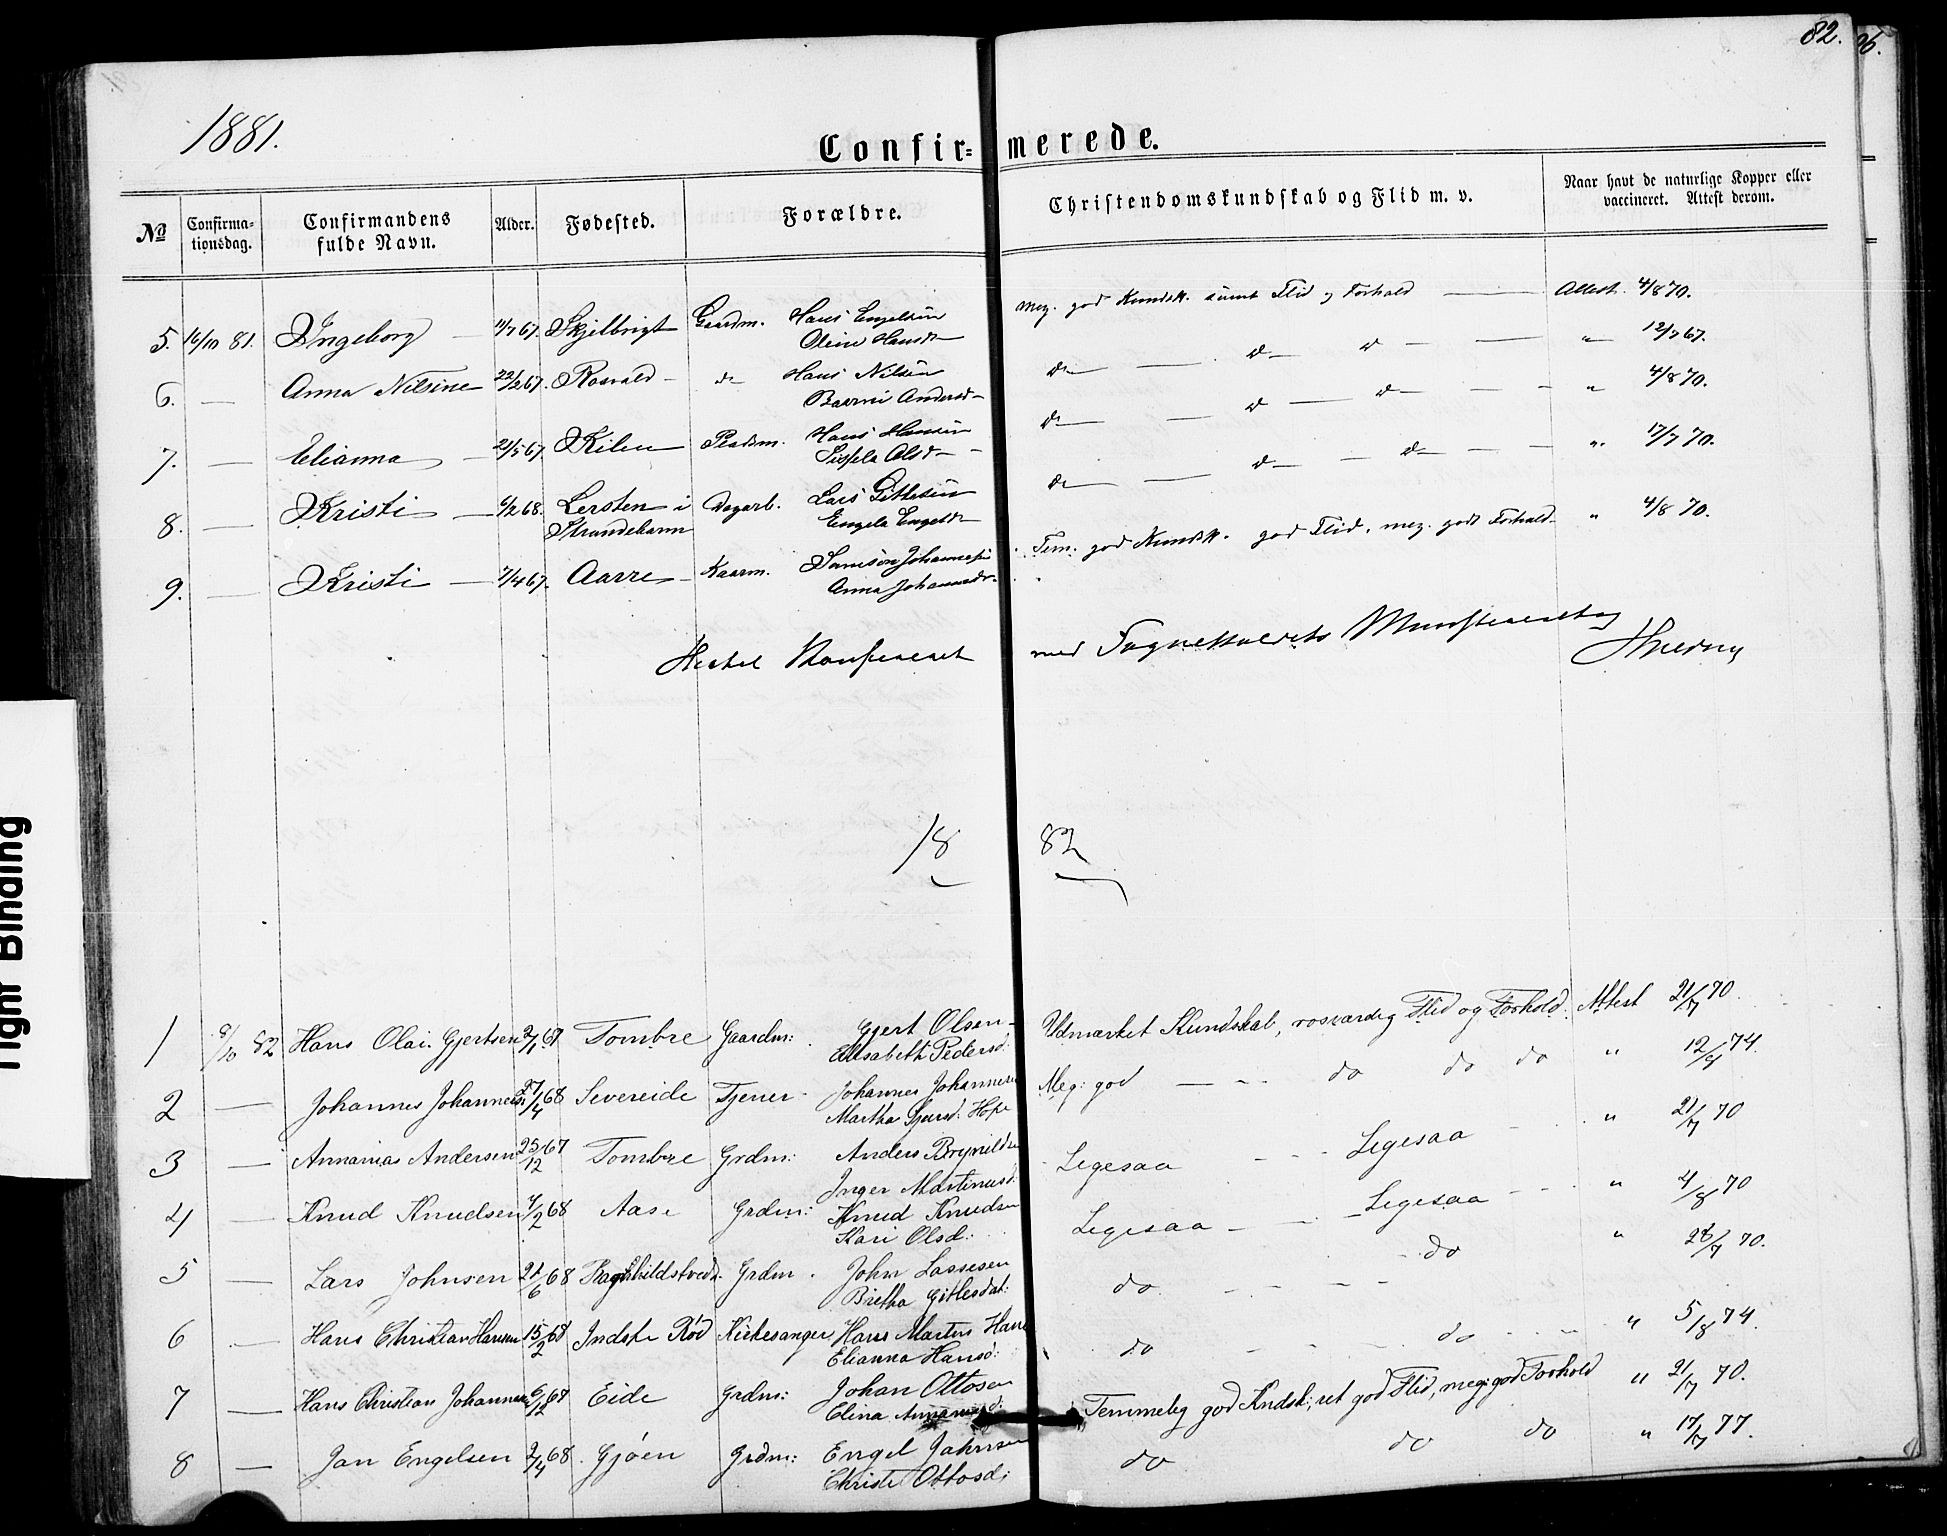 82. 86.
1881.
Confir= merede.
No Confirma-tionsdag. Confirmandens fulde Navn. Alder. Fødested. Forældre. Christendomskundskab og Flid m. v. Naar havt de naturlige Kopper eller vaccineret. Attest derom.
5. 16/10 81. Ingeborg — 11/7 67. Skjelbrigt Gaardm. Hans Engelsen meg. god Kundsk. samt Flid og Forhold — Attest. 4/8 70.
Oline Hansd
6. — Anna Nilsine 22/2 67. Rosvald — do Hans Nilsen do — do — do — — " 12/7 67.
Baarni Andersd
7. — Elianna — 21/5 67. Kilen Pladsm. Hans Hansen do — do — do — — " 4/8 70.
Sissela Olsd —
8. — Kristi — 6/2 68. Lersten i Dagarb. Lars Gitlesen do — do — do — — " 17/7 70.
Strandebarm Engela Engelsd
9. — Kristi — 7/4 67. Aarre — Kaarm. Samson Johannesen Tem. god Kundsk. god Flid. meg. godt Forhold " 4/8 70.
Anna Johannesd
med
18 82
1 8/10 82 Hans Olai Gjertsen 2/1 67 Tombre Gaardm: Gjert Olsen Udmærket Kundskab, rosværdig Flid og Forhold. Attest 21/7 70.
Elisabeth Pedersd:
2 — Johannes Johannesen 27/4 68 Severeide Tjener Johannes Johannesen Meg: god — — do do do " 12/9 74.
Martha Sjursd. Hope
3 — Annanias Andersen 25/12 67 Tombre Grdm: Anders Brynilds Legesaa - - - Legesaa " 21/7 70
Inger Martinusd:
4 — Knud Knudsen 7/2 68 Aase Grdm: Knud Knudsen Legesaa — — Legesaa - - " 4/8 70
Kari Olsd:
5 — Lars Johnsen 21/6 68 Ragnhildstvedt. Grdm. John Lassesen do - - - do " 26/7 70.
Bretha Gitlesdat:
6 — Hans Christian Hansen 15/2 68 Indste Rød Kirkesanger Hans Martin Hans do - - - do " 5/8 74.
Elianna Hansd:
7 — Hans Christian Johannesen 6/12 67 Eide Grdm: Johan Ottosen Temmelig god Kndsk; ret god Flid, meg: god Forhold " 21/7 70.
Elina
8 — Jan Engelsen 2/4 68 Gjøen Grdm: Engel Jahnsen do do do " 17/7 77.
Christi Ottosd:
Tight Binding